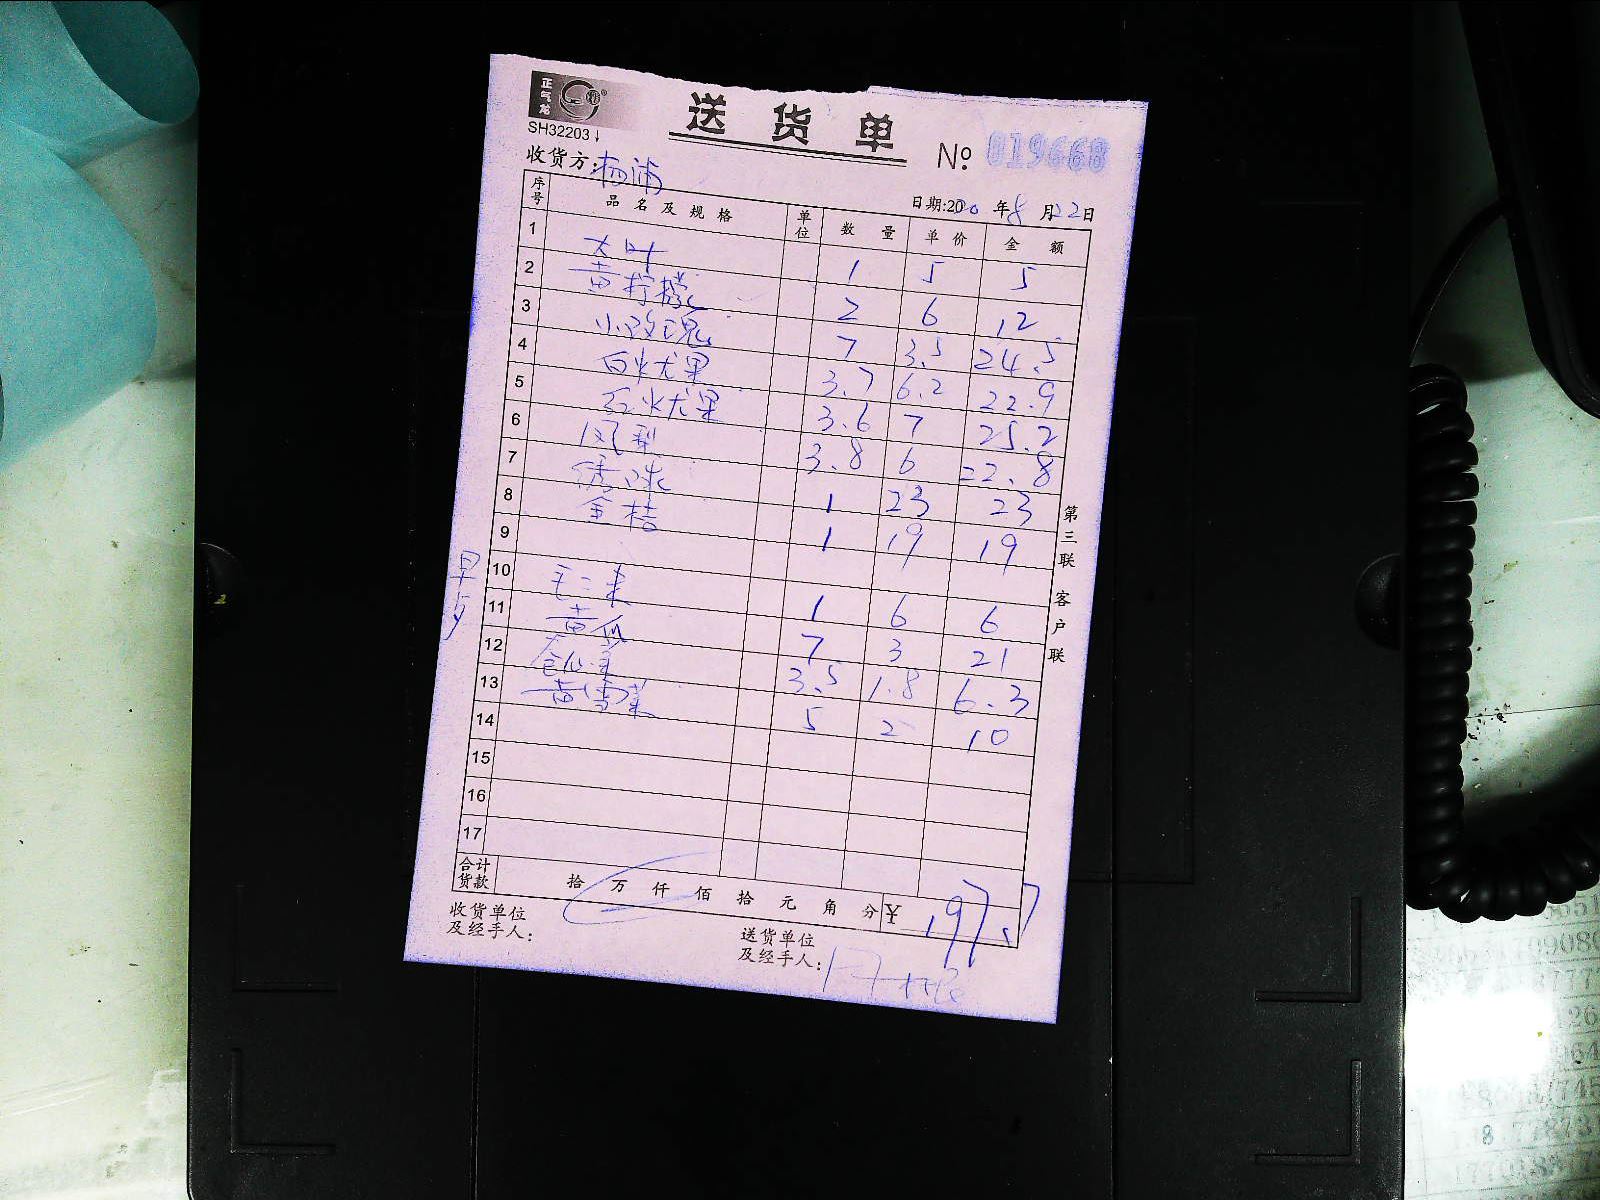 正气龙
SH32203↓
送货单
No. 019668
收货方:杨浦
日期:2020年8月22日
序号 品名及规格 单位 数量 单价 金额
1 大叶 1 5 5
2 黄柠檬 2 6 12
3 小玫瑰 7 3.5 24.5
4 白火尤果 3.7 6.2 22.9
5 红火尤果 3.6 7 25.2
6 凤梨 3.8 6 22.8
7 绣球 1 23 23
8 金桔 1 19 19
9
10 毛二末 1 6 6
11 黄瓜 7 3 21
12 3.5 1.8 6.3
13 5 2 10
14
15
16
17
合计货款 拾 万 仟 佰 拾 元 角 分 ¥ 197.7
收货单位及经手人:
送货单位及经手人:
第三联 客户联
早点